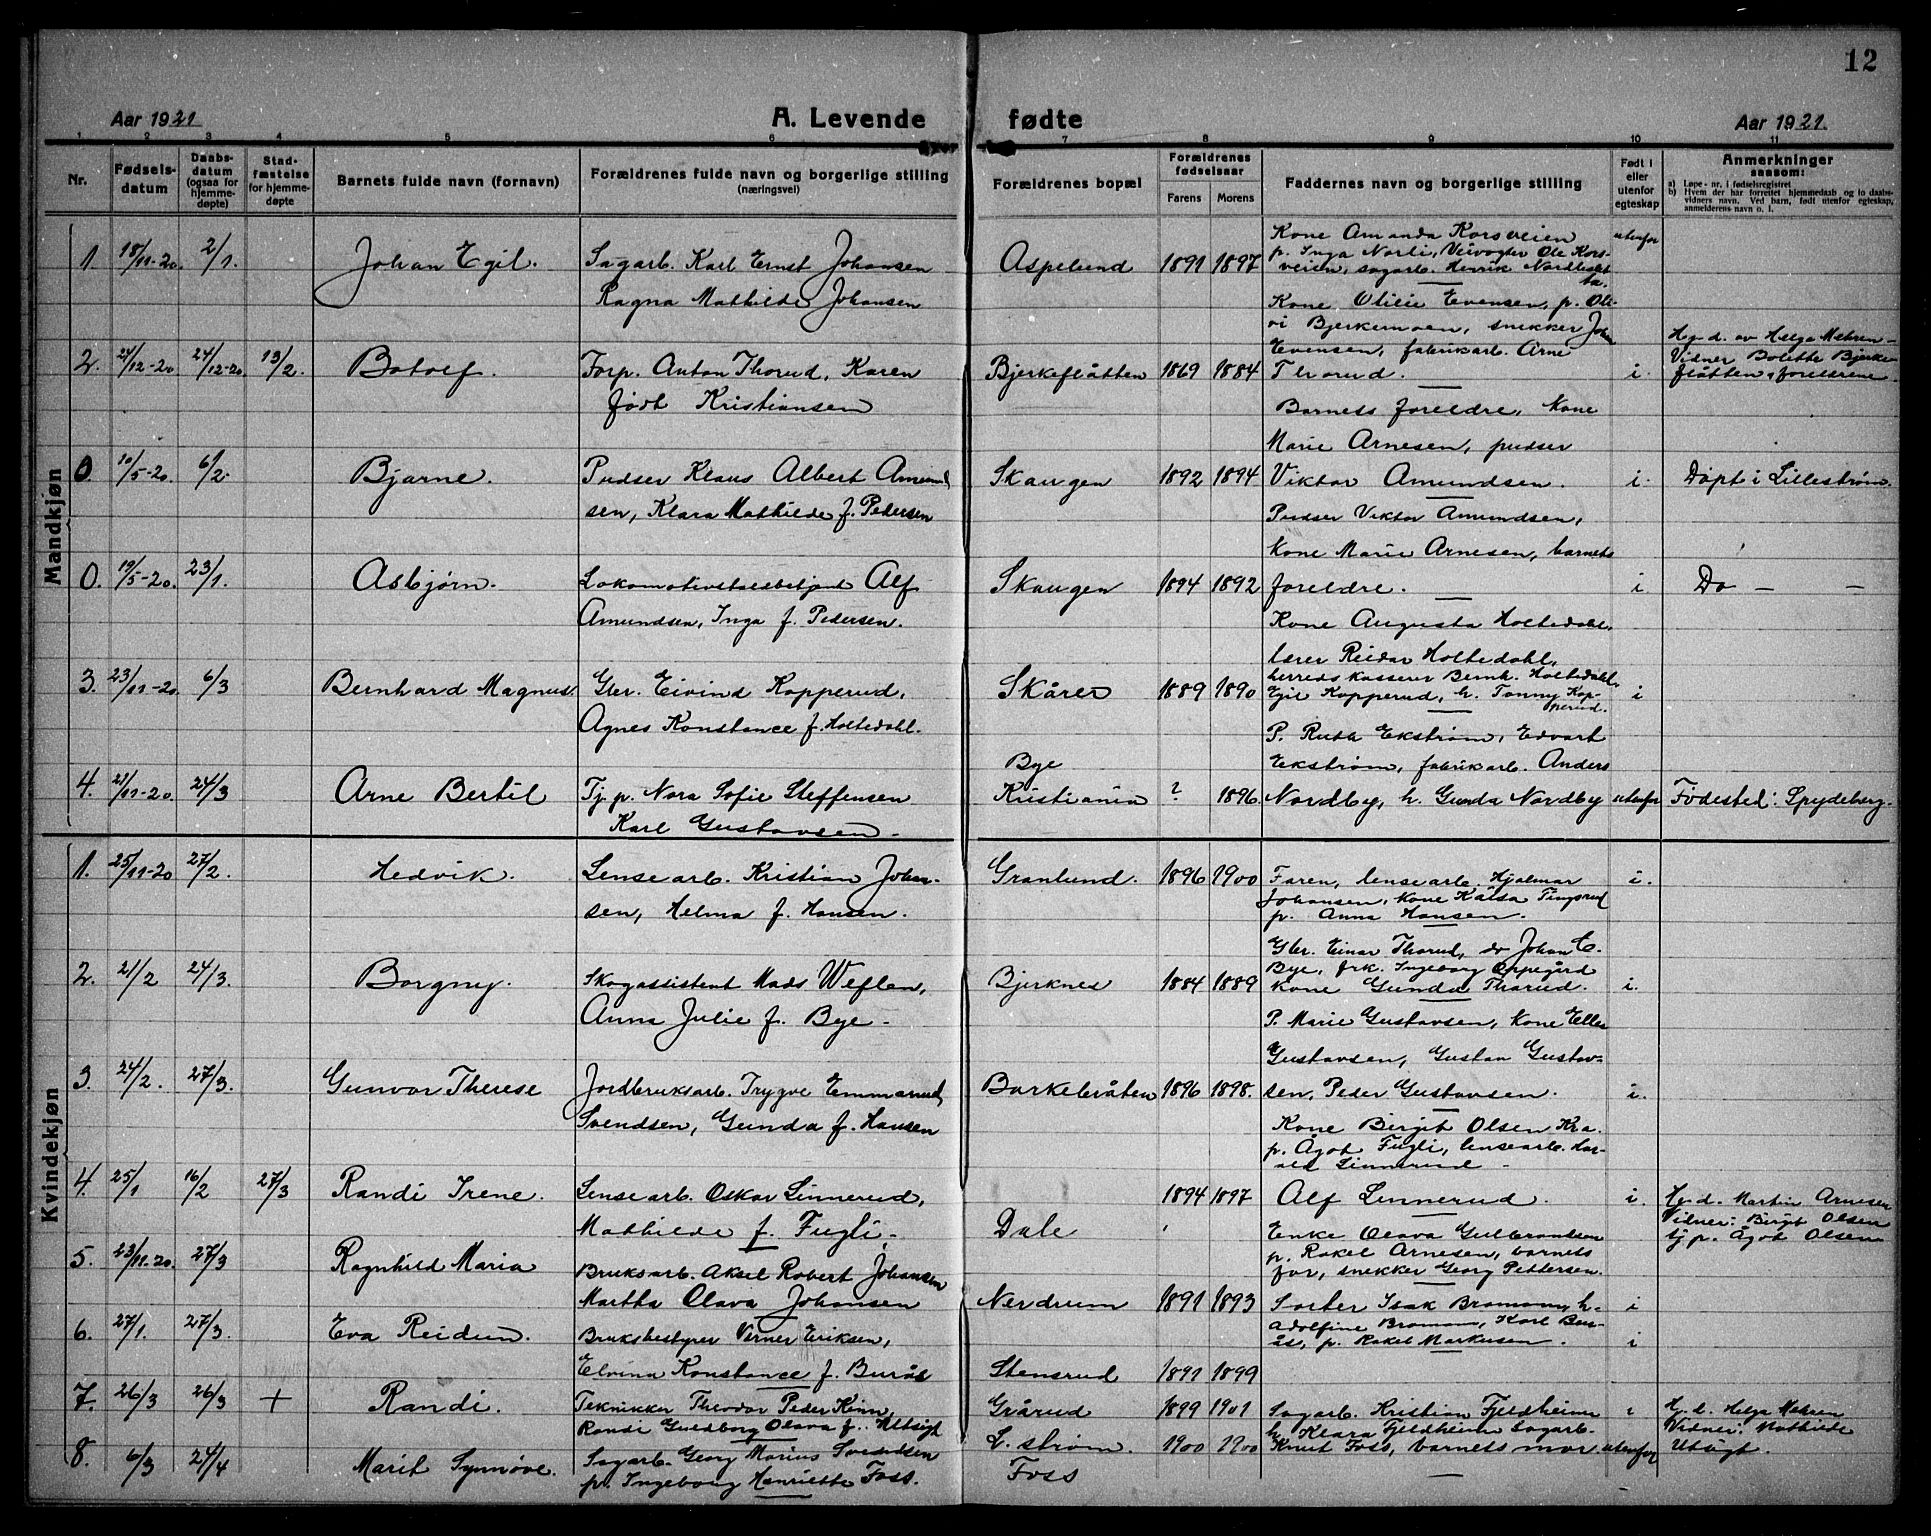 12
Aar 1921
A. Levende fødte
Aar 1921.
1 2 3 4 5 6 7 8 9 10 11
Nr.
Fødsels-
datum
Daabs-
datum
(ogsaa for
hjemme-
døpte)
Stad-
fæstelse
for hjemme-
døpte
Barnets fulde navn (fornavn)
Forældrenes fulde navn og borgerlige stilling
(næringsvei)
Forældrenes bopæl
Forældrenes
fødselsaar
Farens Morens
Faddernes navn og borgerlige stilling
Født i
eller
utenfor
egteskap
Anmerkninger
saasom:
a) Løpe-nr. i fødselsregistret
b) Hvem der har forrettet hjemmedaab og to daabs-
vidners navn. Ved barn, født utenfor egteskap,
anmelderens navn o. l.
Mandkjøn
1. 18/11-20. 2/1. Johan Egil. Sagarb. Karl Ernst Johansen
Ragna Mathilde Johansen
Aspelund 1891 1897
Kone Amanda Korsveien
p. Inga Norli, Veivogter Ole Kors-
veien, sagarb. Henrik
utenfor
2. 24/12-20 24/12-20. 13/2. Botolf. Forp. Anton Thorud, Karen
født Kristiansen
Bjerkeflåtten 1869 1884
Kone Olise Evensen, p. Ole-
vi Bjerkemoen, snekker Joh
Evensen, fabrikarb. Arne
Thorud.
i.
Hj. d. av Helga Mehren -
Vidner Bolette Bjerke-
flåtten, foreldrene.
0. 10/5-20. 6/2. Bjarne. Pudser Klaus Albert Amund
sen, Klara Mathilde f. Pedersen
Skaugen 1892 1894
Barnets foreldre, Kone
Marie Arnesen, pudser
Viktor Amundsen.
i. Døpt i Lillestrøm.
0. 19/5-20. 23/1. Asbjørn. Alf
Amundsen, Inga f. Pedersen.
Skaugen 1894 1892
Pudser Viktor Amundsen,
Kone Marie Arnesen, barnets
foreldre.
i. Do — —
3. 23/11-20 6/3 Bernhard Magnus. Gbr. Eivind Kopperud,
Agnes Konstance f. Holtedahl.
Skårer 1889 1890
Kone Augusta Holtedahl,
lærer Reidar Holtedahl,
herredskasserer Bernh. Holtedahl,
Egil Kopperud, h. Tonny Kop-
perud.
i
4. 21/11-20. 24/3 Arne Bertil Tj. p. Nora Sofie Steffensen
Karl Gustavsen -
Bye
Kristiania ? 1896.
P. Ruth Ekstrøm, Edvart
Ekstrøm, fabrikarb. Anders
Nordby, h. Gunda Nordby
utenfor Fødested: Spydeberg.
Kvindekjøn
1. 25/11-20 27/2. Hedvik. Lensearb. Kristian Johan-
sen, Helma f. Hansen.
Granlund. 1896 1900
Faren, lensearb. Hjalmar
Johansen, Kone Kaisa Tingsrud
p. Anna Hansen.
i.
2. 21/2 24/3. Borgny. Skogassistent Mads Weflen,
Anna Julie f. Bye -
Bjerknes 1884 1889
Gbr. Einar Thorud, do Johan C.
Bye, frk. Ingeborg Oppegård
Kone Gunda Thorud.
i.
3. 24/2. 27/3. Gunvor Therese Jordbruksarb. Trygve Emmanuel
Svendsen, Gunda f. Hansen
Borkebråten 1896 1898.
P. Marie Gustavsen, Kone Ellen
Gustavsen, Gustav Gustav-
sen, Peder Gustavsen.
i.
4. 25/1 16/2 27/3 Randi Irene. Lensearb. Oskar Linnerud,
Mathilde f. Fugli.
Dale 1894 1897
Kone Birgit Olsen Kra.
p. Ågot Fugli, lensearb. Har-
ald Linnerud -
Alf Linnerud.
i. Hj. d. Martin Arnesen
Vidner: Birgit Olsen
tj p. Ågot Olsen
5. 23/11-20. 27/3 Ragnhild Maria Bruksarb. Aksel Robert Johansen
Martha Olava Johansen
Nerdrum 1891 1893
Enke Olava Gulbrandsen
p. Rakel Arnesen, barnets
far, snekker Georg Pettersen.
i
6. 27/1. 27/3. Eva Reidun. Bruksbestyrer Verner Eriksen,
Elvina Konstance f. Burås
Stensrud 1891 1899
Sorter Isak Bromann, h.
Adolfine Broman, Karl Bur-
ås, p. Rakel Markusen.
i
7. 26/3 26/3 + Randi. Teknikker Theodor Peder Kinn,
Randi Guldborg Olava f. Utsigt
Grårud 1899 1901
Sagarb. Kristian Fjeldheim
h. Klara Fjeldheim Sagarb.
i Hj. d. Helga Mehren
Vidner: Mathilde
Utsigt.
8. 6/3 24/4 Marit Synnøve. Sagarb. Georg Marius Svendsen
p. Ingeborg Henriette Foss.
L. strøm.
Foss
1900 1900 Knut Foss, barnets mor
utenfor